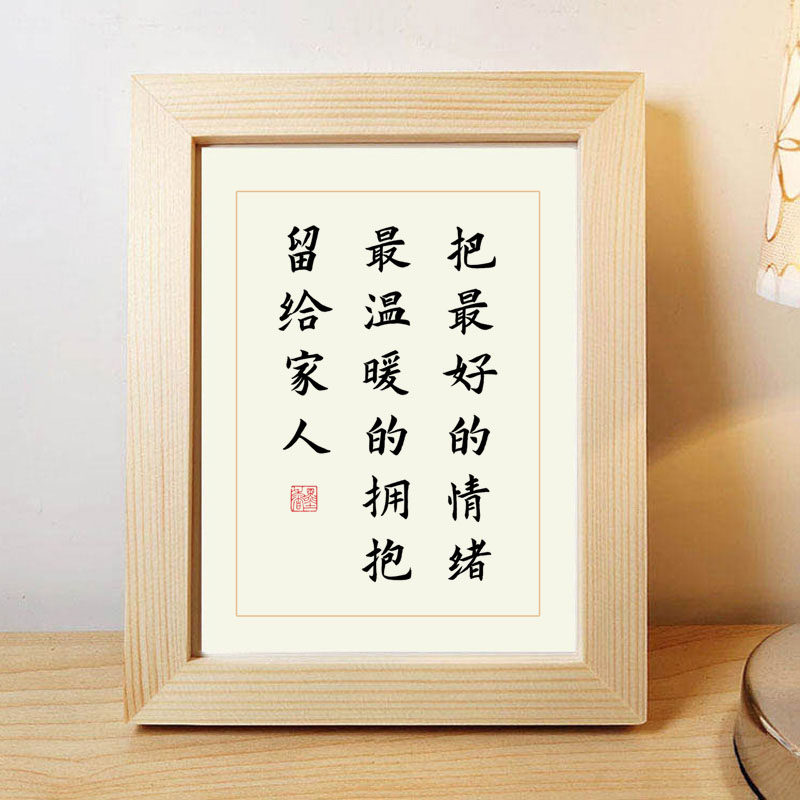 把最好的情绪
最温暖的拥抱
留给家人